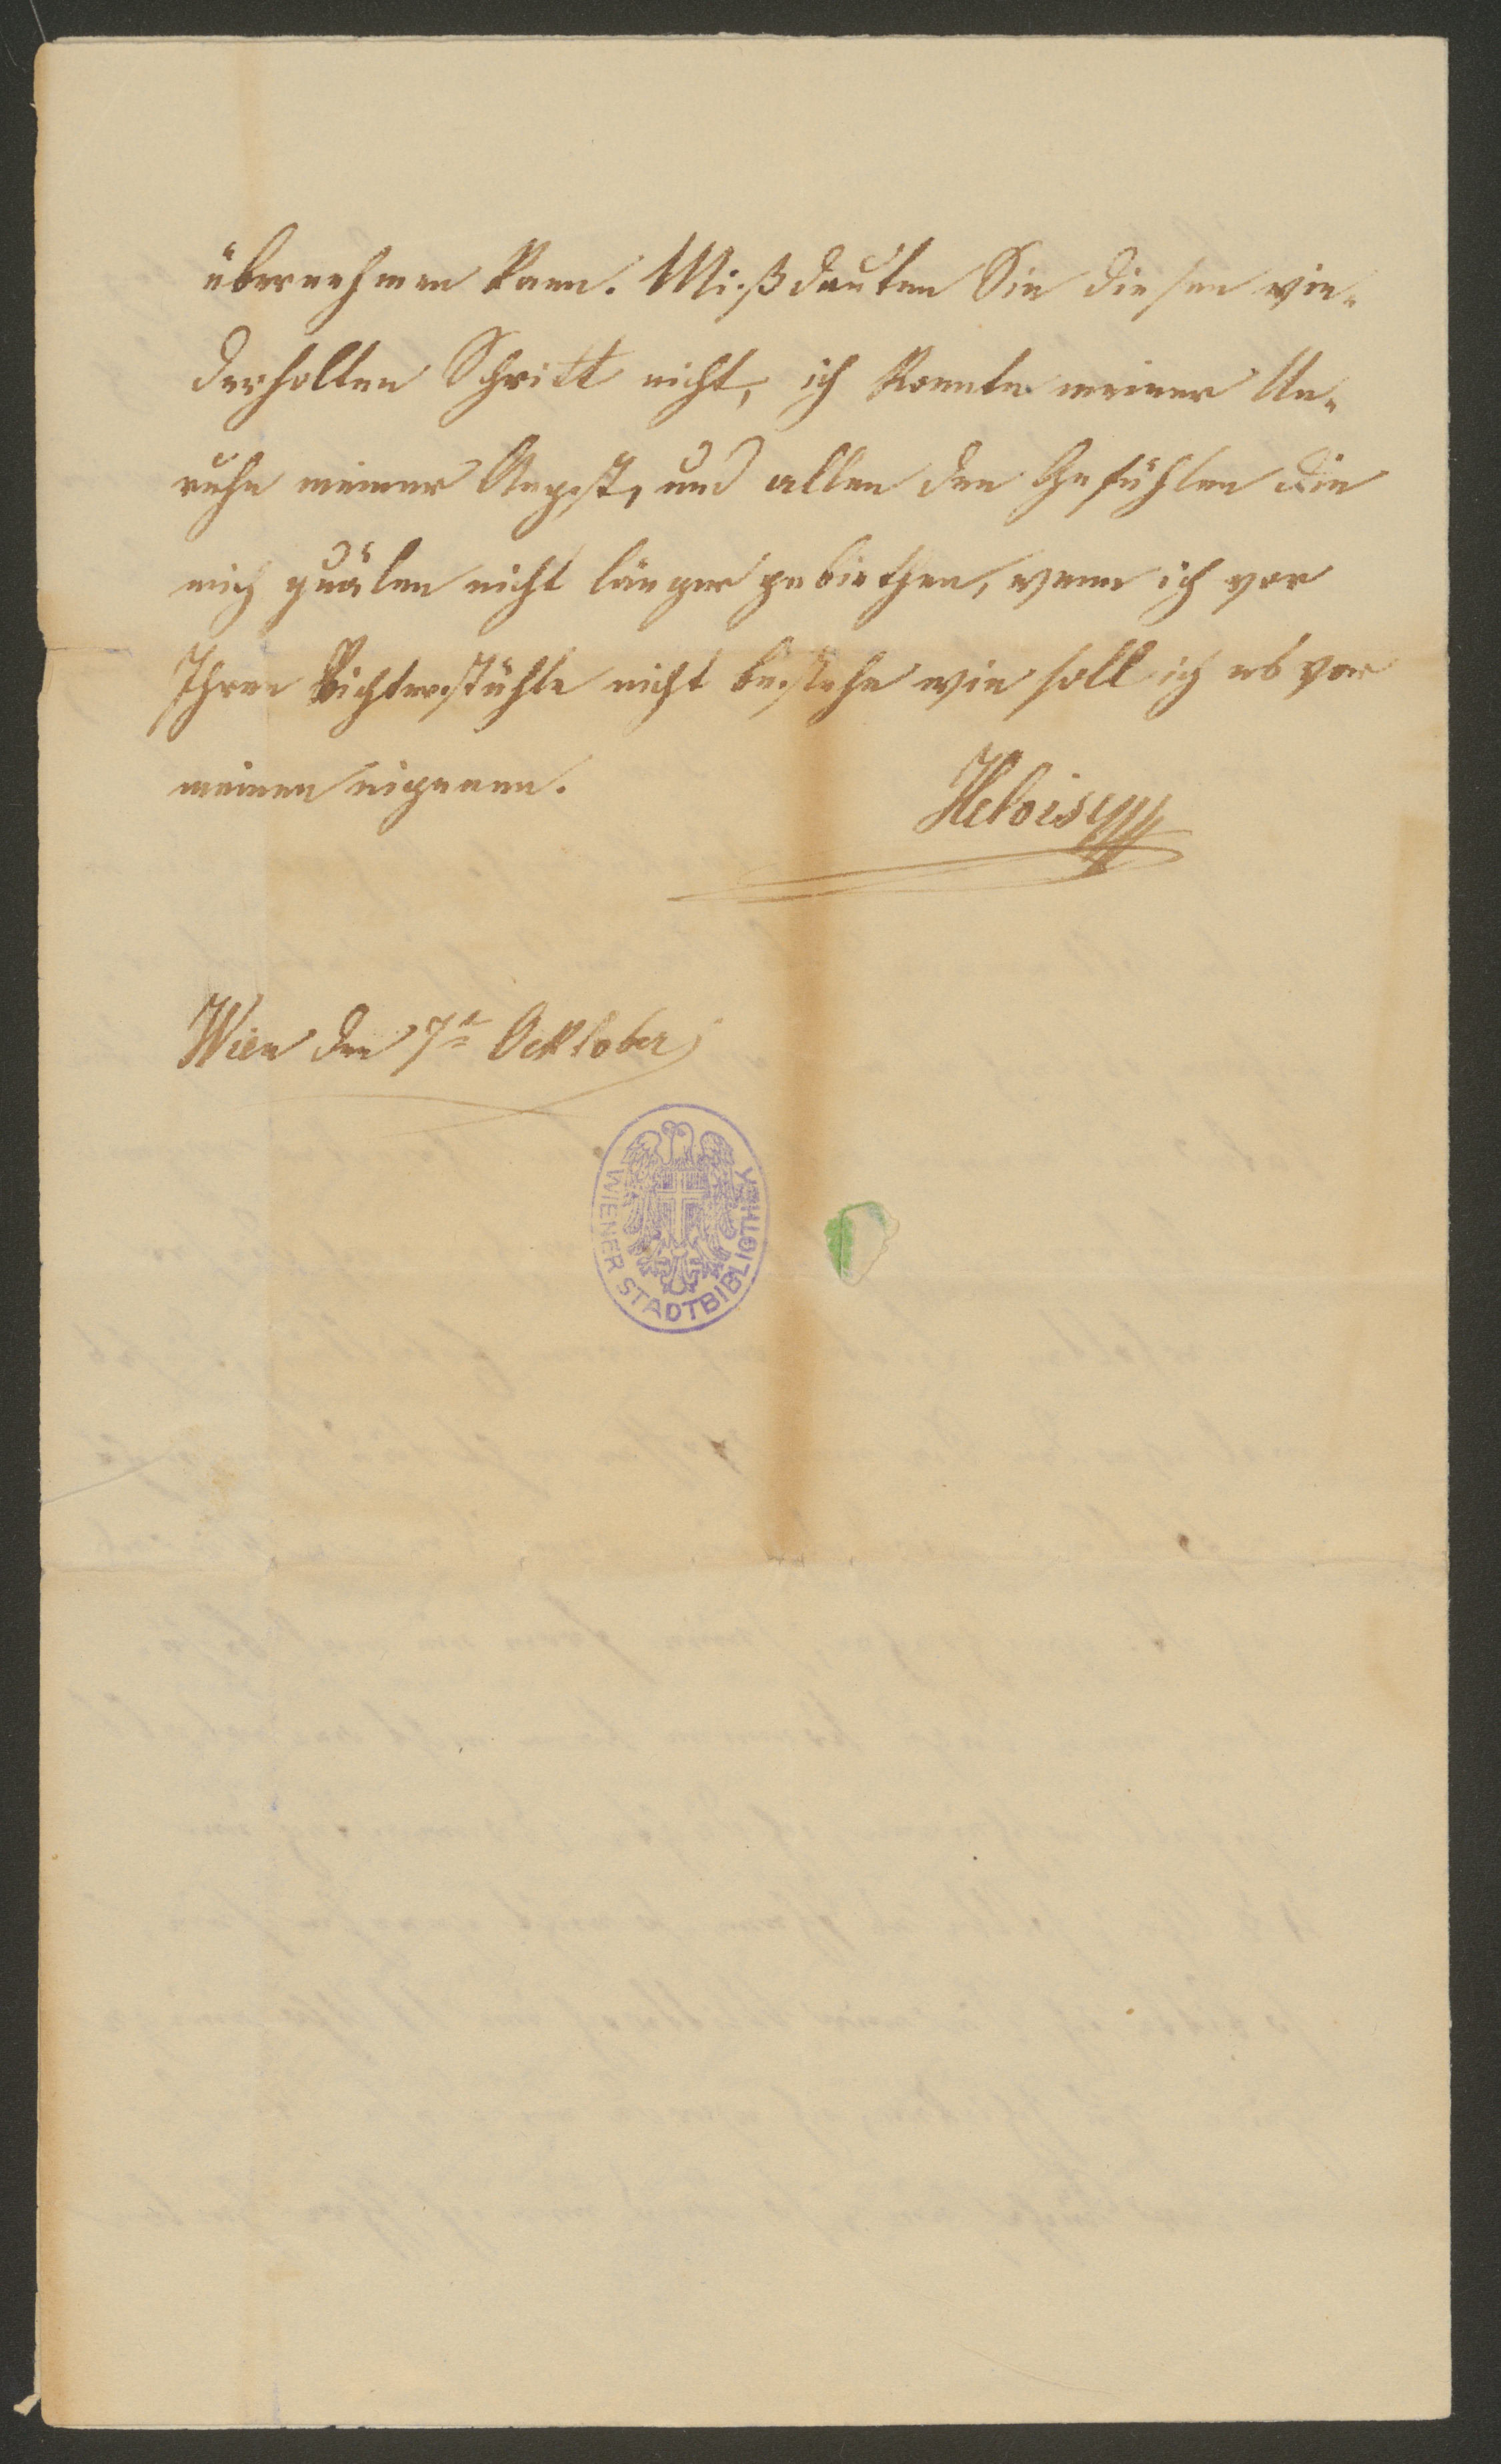 übernehmen kann. Mißdeuten Sie diesen wie-
derholten Schritt nicht, ich konnte meiner Un-
ruhe meiner Angst, und allen den Gefühlen die
mich quälen nicht länger gebiethen, wenn ich vor
Ihren Richterstuhle nicht bestehe wie soll ich es vor
meinen eigenen.
Heloise
Wien den 7t Ocktober
WIENER STADTBIBLIOTHEK